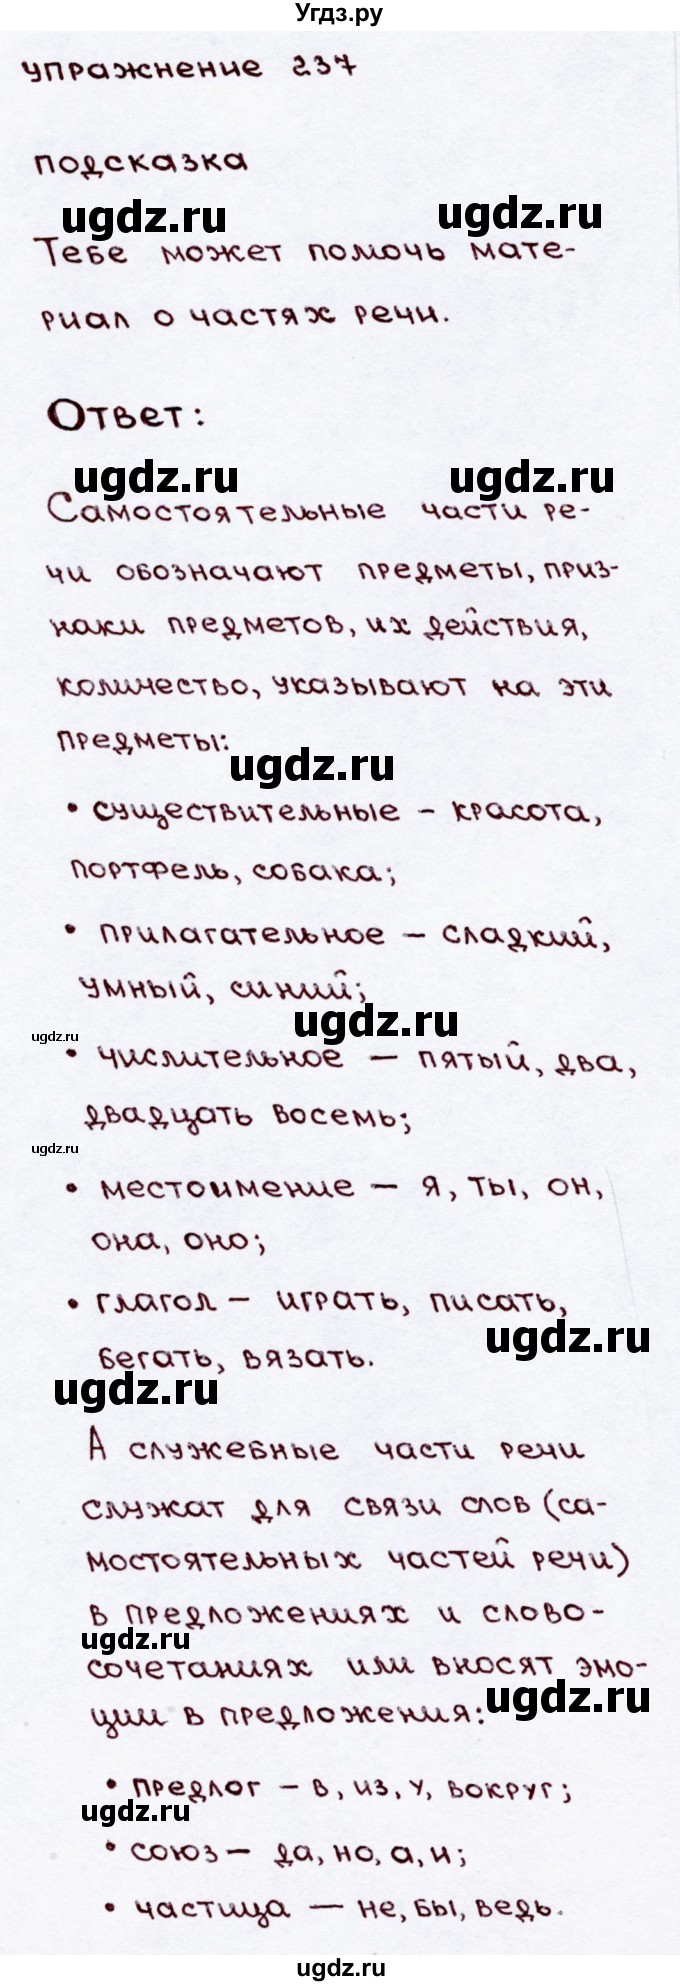 Угдз.ру
упражнение 237
подсказка
ugdz.ru ugdz.ru
Тебе может помочь мате-
риал о частях речи.
Ответ:
ugdz.ru ugdz.ru
Самостоятельные части ре-
чи обозначают предметы, приз-
наки предметов, их действия,
количество, указывают на эти
предметы:
ugdz.ru
• существительные – красота,
портфель, собака;
• прилагательное – сладкий,
умный, синий;
ugdz.ru
ugdz.ru
• числительное – пятый, два,
двадцать восемь;
ugdz.ru
• местоимение – я, ты, он,
она, оно;
• глагол – играть, писать,
ugdz.ru
бегать, вязать.
ugdz.ru
А служебные части речи
служат для связи слов (са-
мостоятельных частей речи)
в предложениях и слово-
ugdz.ru
сочетаниях или вносят эмо-
ugdz.ru
ции в предложения:
• предлог – в, из, у, вокруг;
ugdz.ru
• союз – да, но, а, и;
• частица – не, бы, ведь.
ugdz.ru